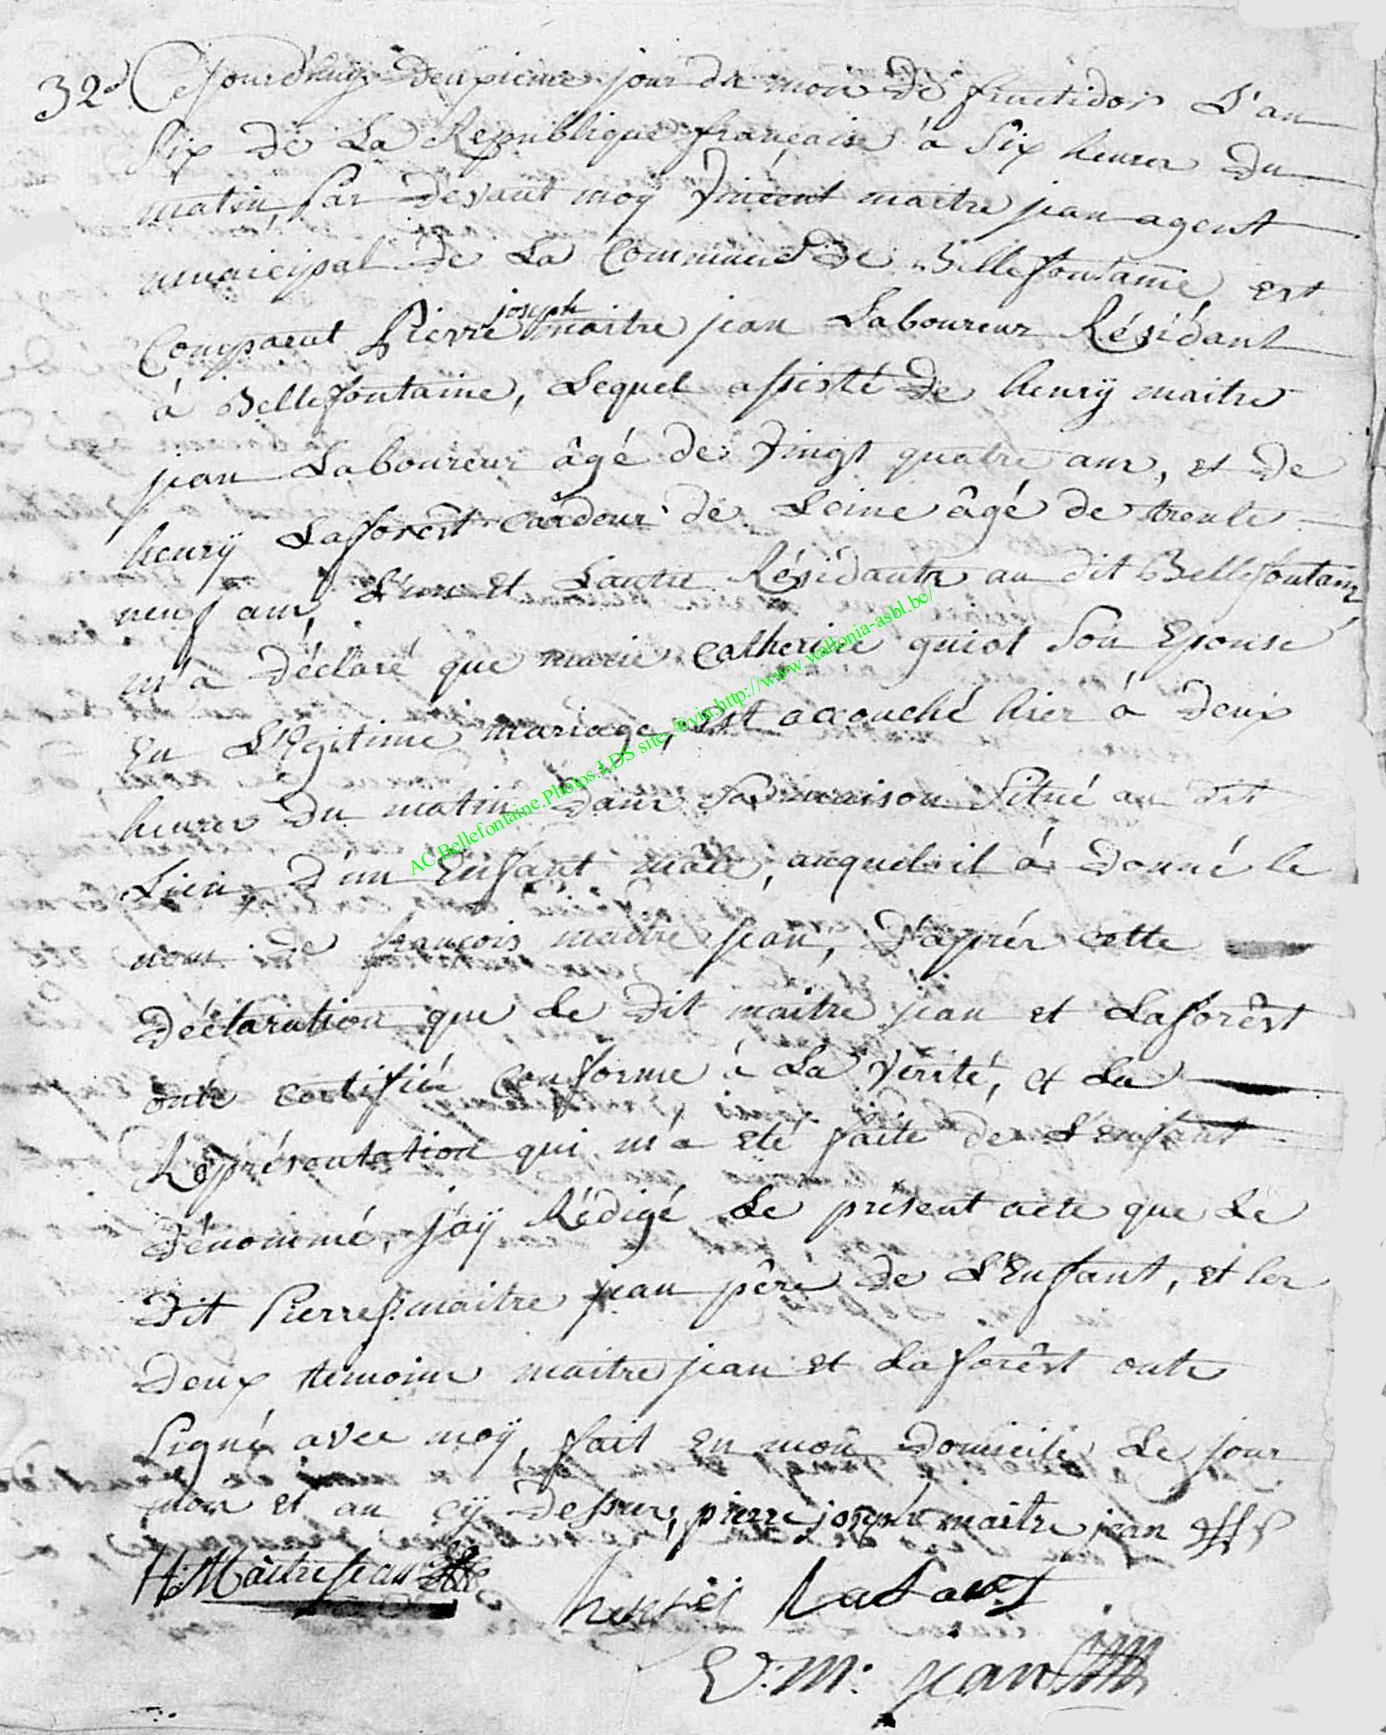 32e Cejourd'huy deuxieme jour du mois de fructidor L'an
six de La Republique française à six heures du
matin, par devant moÿ Vincent maitre jean agent
municipal de La Commune de Bellefontaine est
joseph
Comparut Pierre maitre jean Laboureur Résidant
à Bellefontaine, Lequel assisté de henrÿ maitre
jean Laboureur âgé de vingt quatre ans, et de
henrÿ Lafforêst cardeur de Leine âgé de trente
neuf ans, L'un et Lautre Résidants au dit Bellefontaine
m'a déclaré que marie catherine guiot son Epouse
En Légitime mariage, Est accouché hier à deux
heures du matin dans sa maison situé au dit
Lieu, d'un Enfant mâle, auquel il à donné le
nom de françois maitre jean, d'aprés cette
déclaration que Le dit maitre jean et Laforêst
onts certifiée conforme à La vérité, et La
Représentation qui m'a eté faite de L'enfant
dénommé, j'aÿ Rédigé Le présent acte que Le
dit Pierre j: maitre jean pêre de L'Enfant, et les
deux temoins maitre jean et Laforêst onts
signé avec moÿ, fait en mon domicile Le jour
mois et an cÿ dessus, pierre joseph maitre jean
H: Maitre jean
henrÿ
V: m: jean
AC.Bellefontaine.Photos.LDS site. ©via http://www.wallonia-asbl.be/